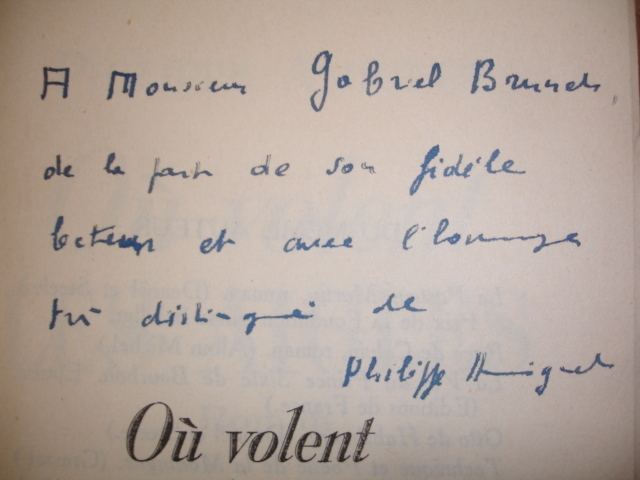 A Monsieur Gabriel Brunet,
de la part de son fidèle
lecteur et avec l'hommage
très distingué de
Philippe Amiguet
Où volent